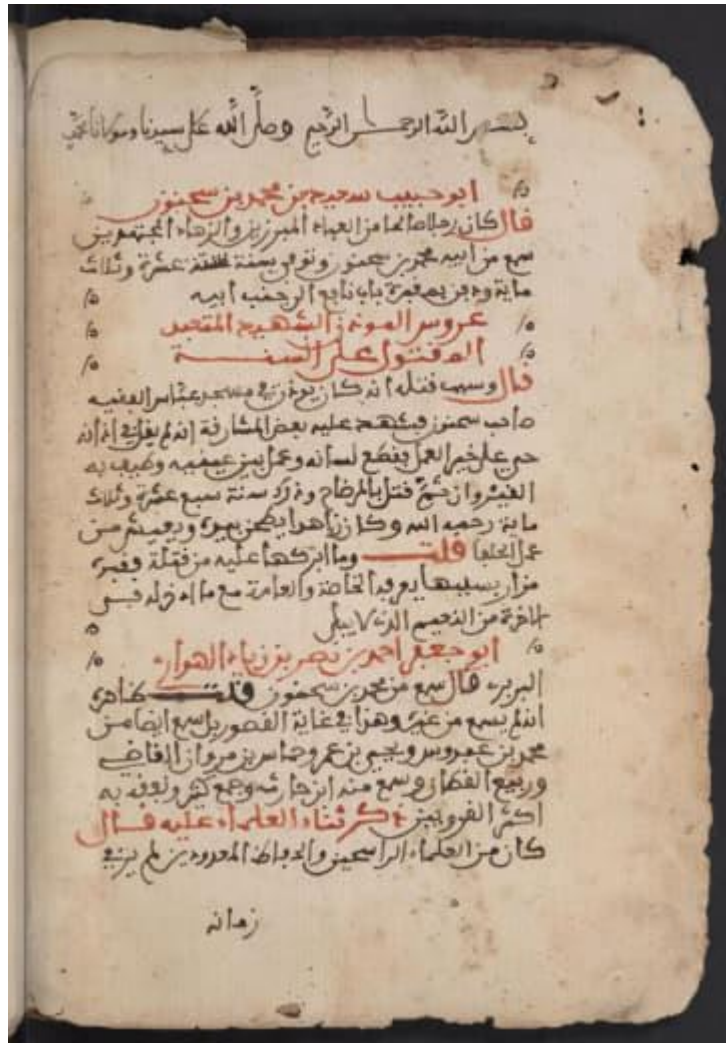 بسم الله الرحمن الرحيم وصلى الله على سيدنا ومولانا محمد
ابو حبيب سعيد بن محمد بن سحنون
قال كان رجلا صالحا من العباد المبرزين والزهاد المجتهدين
سمع من ابيه محمد بن سحنون وتوفي سنة عشرة وثلاث
ماية ودفن بمقبرة باب نافع الى جنب ابيه
عروس الموذن الشهيد المتعبد
المقتول على السنة
قال وسبب قتله انه كان يوذن في مسجد عباس الفقيه
صاحب سحنون فشهد عليه بعض المشارقة انه لم يقل في اذانه
حي على خير العمل فقطع لسانه وعمل بين عينيه وطيف به
القيروان ثم قتل بالرماح وذلك سنة سبع عشرة وثلاث
ماية رحمه الله وكان زاهدا يطحن بيده ويعيش من
عمل الحلفا قلت وما ابركها عليه من قتلة فقبره
مزار بسببها يعرفه الخاصة والعامة مع ما ادخر له في
الاخرة من النعيم الذي لا يبلى
ابو جعفر احمد بن نصر بن زياد الهواري
البربري قال سمع من محمد بن سحنون قلت ظاهره
انه لم يسمع من غيره وهذا في غاية القصور بل سمع ايضا من
محمد بن عبدوس ويحيى بن عمر وحماس بن مروان القاضي
وربيع القطان وسمع منه ابن حارث وجمع كثير وتفقه به
اكثر القرويين ذكر ثناء العلماء عليه قال
كان من العلماء الراسخين والحفاظ المعدودين لم يرفي
زمانه